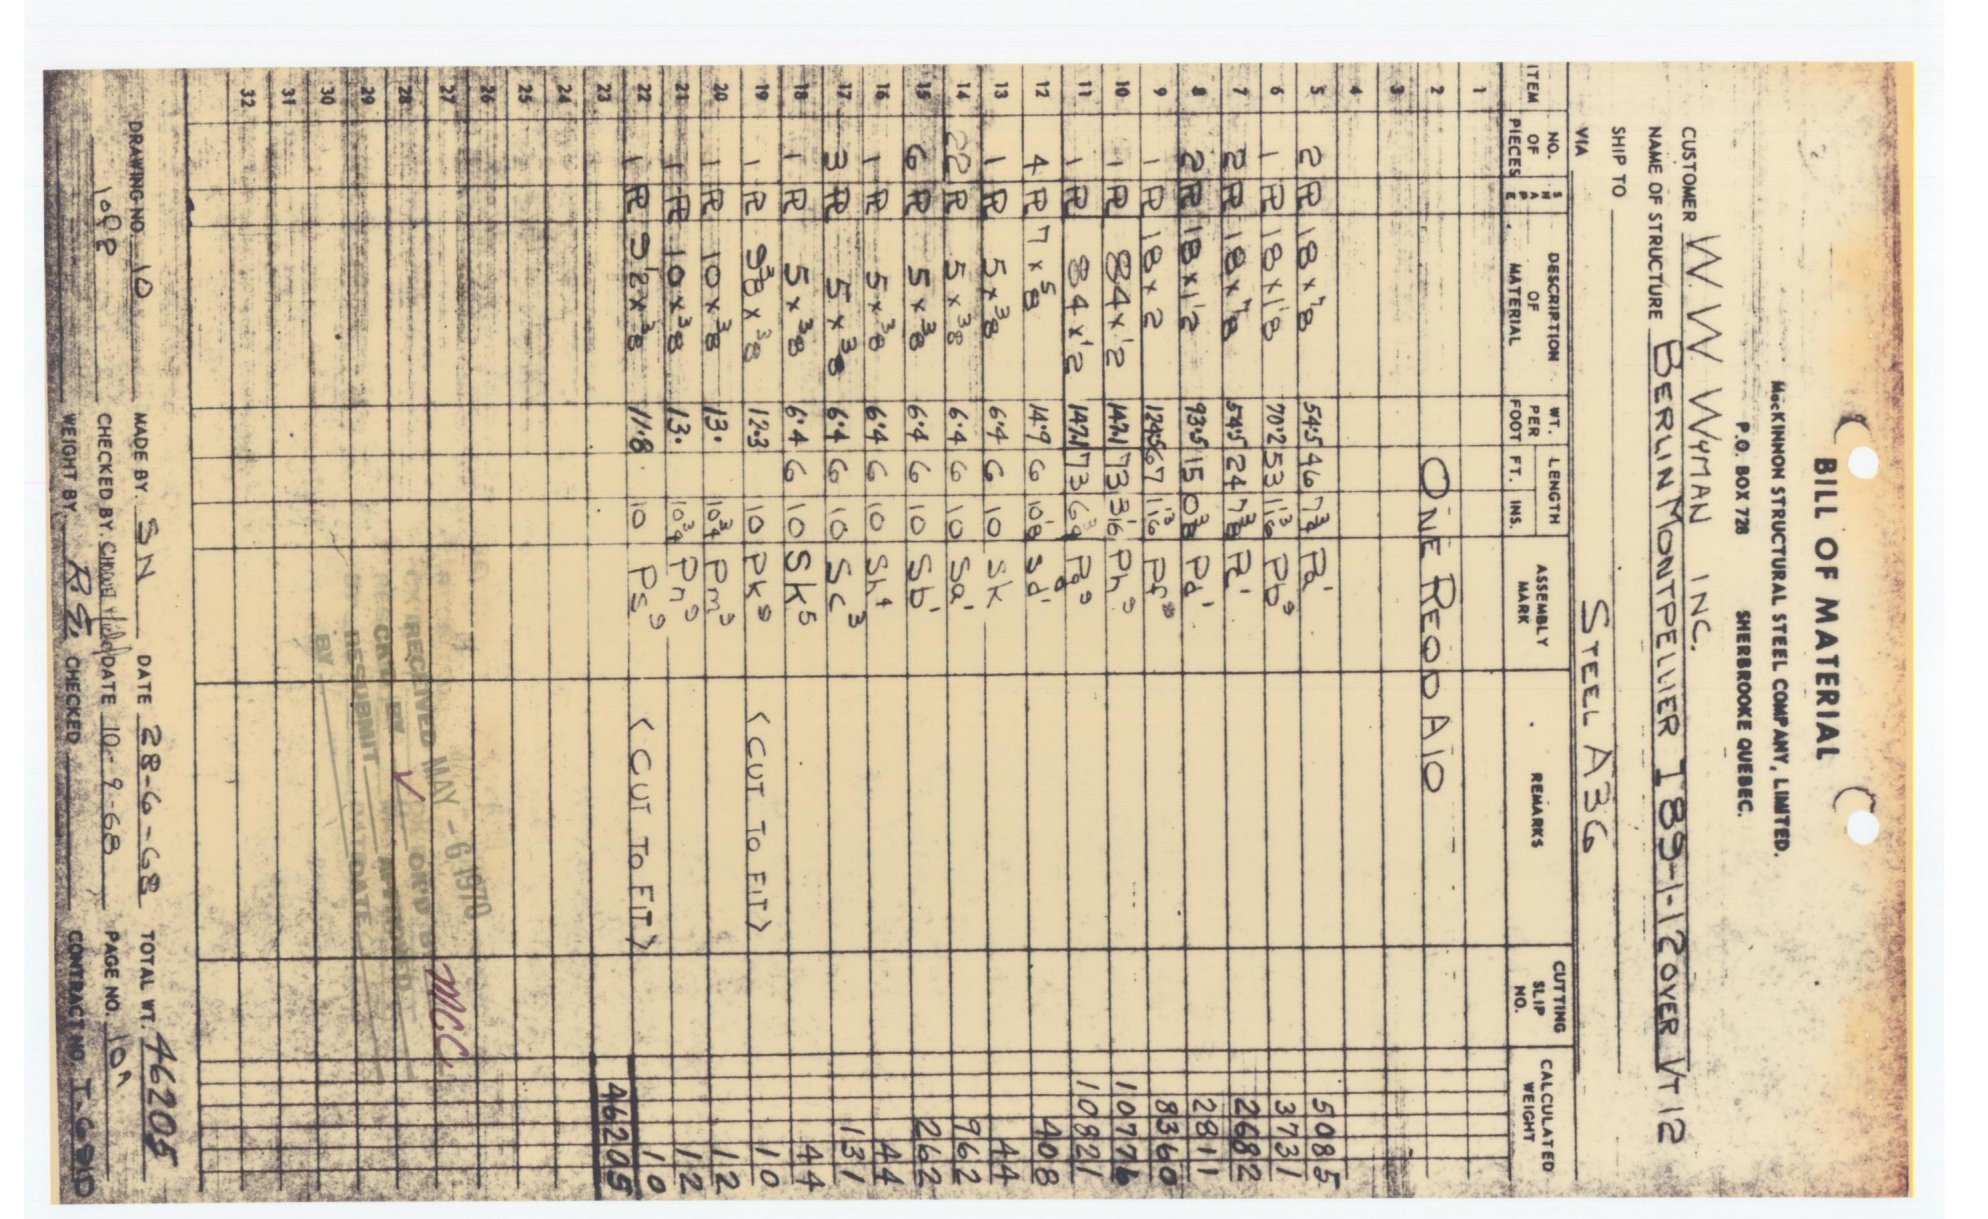 BILL OF MATERIAL
MacKINNON STRUCTURAL STEEL COMPANY, LIMITED.
P.O. BOX 728 SHERBROOKE QUEBEC.
CUSTOMER W. W. WYMAN INC.
NAME OF STRUCTURE BERLIN MONTPELLIER I 89-1-12 OVER VT 12
SHIP TO
VIA STEEL A36
ITEM NO. OF PIECES SHAPE DESCRIPTION OF MATERIAL WT. PER FOOT LENGTH FT. INS. ASSEMBLY MARK REMARKS CUTTING SLIP NO. CALCULATED WEIGHT
1
2 ONE REQD A10
3
4
5 2 PL 18 x 7/8 54.5 46 7 3/4 Pa' 5085
6 1 PL 18 x 1 1/8 70.2 53 1 3/16 Pb9 3731
7 2 PL 18 x 7/8 54.5 24 7 3/8 Pc' 2682
8 2 PL 18 x 1 1/2 93.5 15 0 3/8 Pd' 2811
9 1 PL 18 x 2 124.5 67 1 3/16 Pf9 8360
10 1 PL 84 x 1/2 147.1 73 3 1/16 Ph9 10776
11 1 PL 84 x 1/2 147.1 73 6 3/4 Pg9 10821
12 4 PL 7 x 5/8 14.9 6 10 1/8 Sd' 408
13 1 PL 5 x 3/8 6.4 6 10 Sk 44
14 22 PL 5 x 3/8 6.4 6 10 Sa' 962
15 6 PL 5 x 3/8 6.4 6 10 Sb' 262
16 1 PL 5 x 3/8 6.4 6 10 Sh4 44
17 3 PL 5 x 3/8 6.4 6 10 Sc3 131
18 1 PL 5 x 3/8 6.4 6 10 Sk5 44
19 1 PL 9 3/8 x 3/8 12.3 10 Pk9 (CUT TO FIT) 10
20 1 PL 10 x 3/8 13. 10 3/4 Pm3 12
21 1 PL 10 x 3/8 13. 10 3/4 Pn9 12
22 1 PL 9 1/2 x 3/8 11.8 10 Ps9 (CUT TO FIT) 10
23 46205
24
25
26
27
28
29
30
31
32
RECEIVED MAY - 6 1970
CK'D BY OK'D BY
RESUBMIT
BY DATE
MCC
DRAWING NO. 10 MADE BY. SN DATE 28-6-68 TOTAL WT. 46205
CHECKED BY. DATE 10-9-68 PAGE NO. 10A
WEIGHT BY. R.E. CHECKED CONTRACT NO.